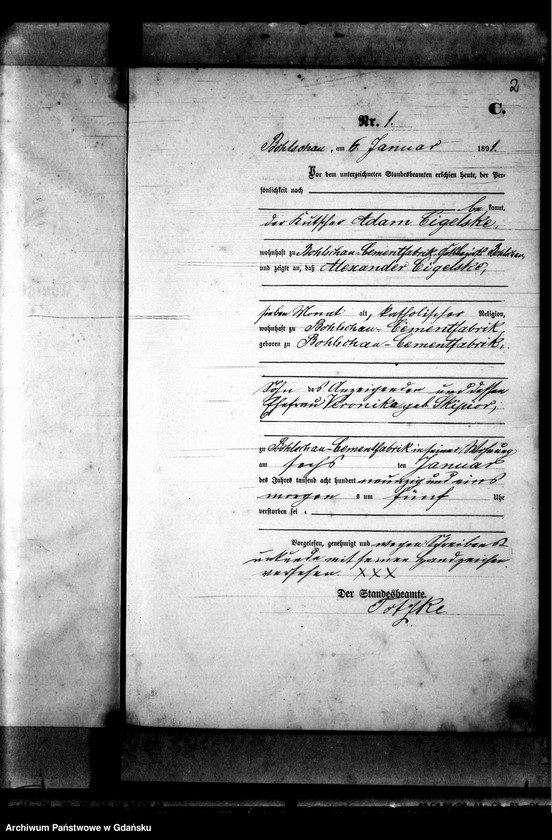 2
C.
Nr. 1.
Bohlschau, am 6. Januar 1891.
Vor dem unterzeichneten Standesbeamten erschien heute, der Per-
sönlichkeit nach
be kannt,
der Kutscher Adam Cigelske,
wohnhaft zu Bohlschau-Cementfabrik, Gutsbezirk Bohlschau,
und zeigte an, daß Alexander Cigelske,
sieben Monat alt, katholischer Religion,
wohnhaft zu Bohlschau-Cementfabrik,
geboren zu Bohlschau-Cementfabrik,
Sohn des Anzeigenden und dessen
Ehefrau Veronika geb
zu Bohlschau-Cementfabrik in seiner Wohnung
am sechs ten Januar
des Jahres tausend acht hundert neunzig und eins
morgens um fünf Uhr
verstorben sei.
Vorgelesen, genehmigt und wegen Schreibens
unkunde mit seinen Handzeichen
versehen. XXX
Der Standesbeamte.
Archiwum Państwowe w Gdańsku